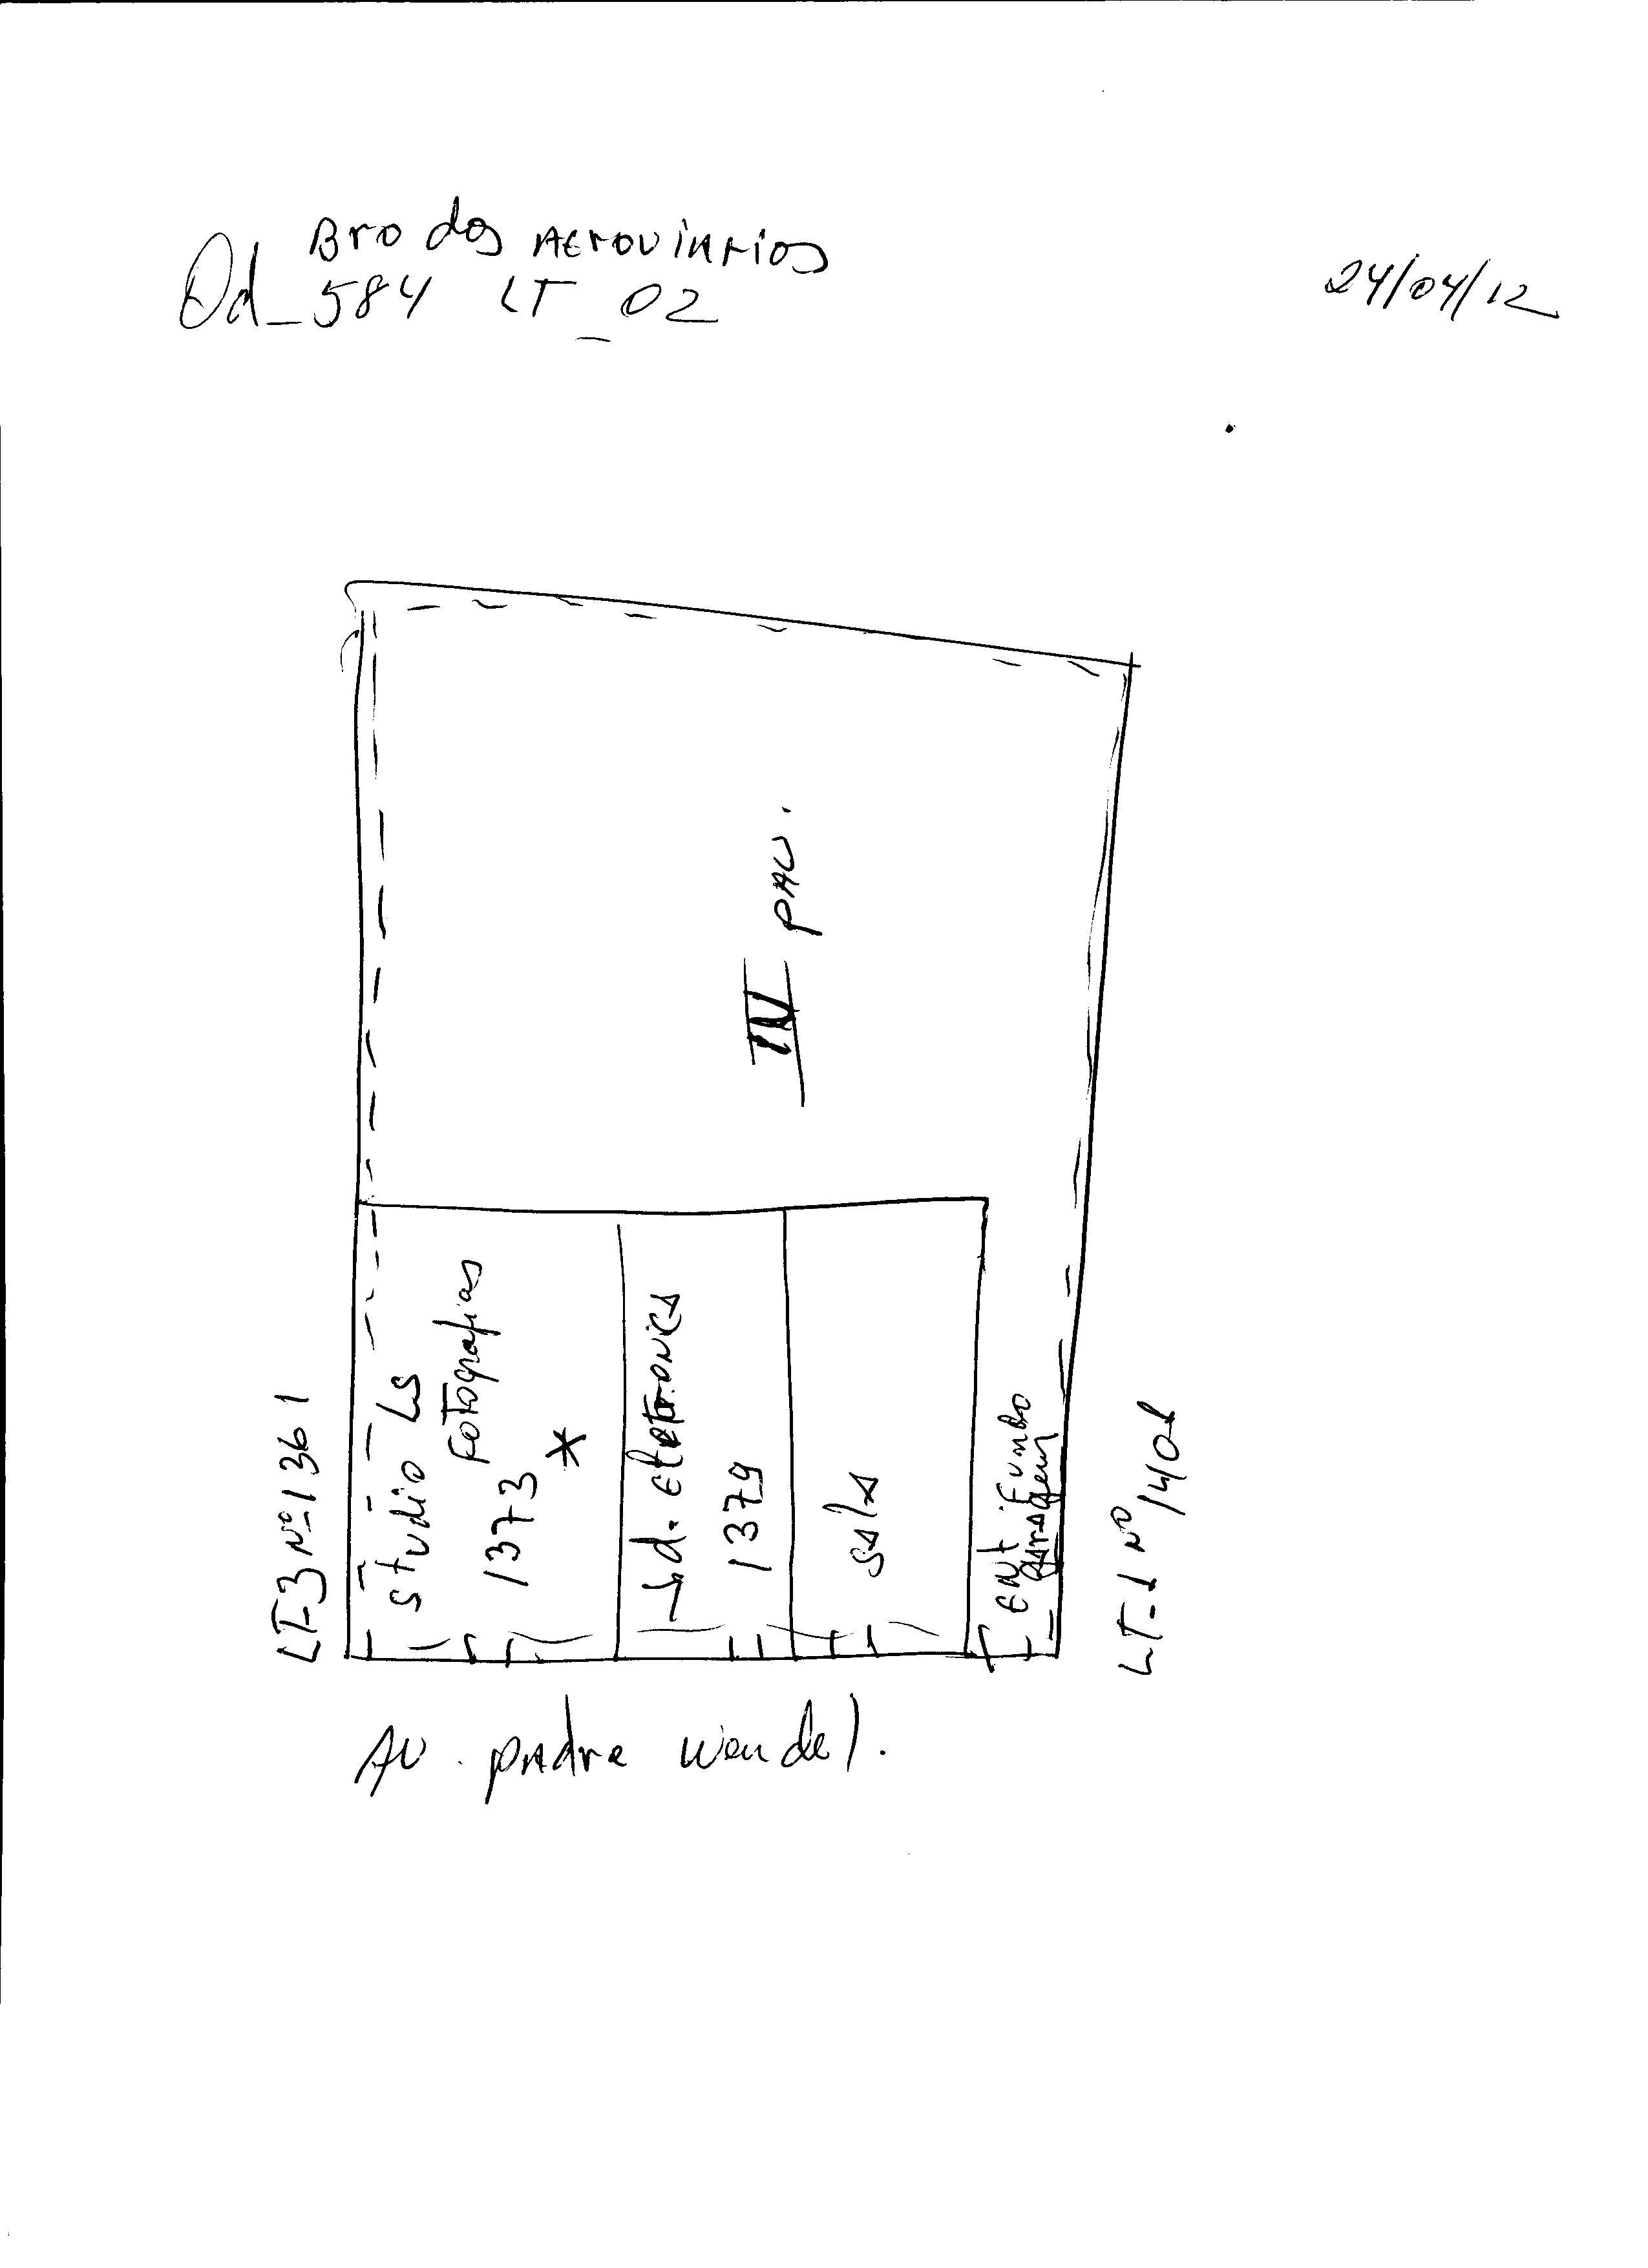 Bro dos Aeroviarios
Qd_584 LT_02
24/04/12
IV pav.
LT-3 Nº-1361
studio Ls
Fotografias
1373
*
d. eletronica
1379
sala
ent. Fundo
garagem
LT-1 Nº
1401
Av. padre wendel.